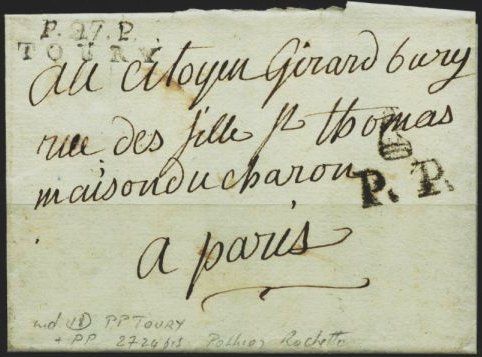 P.27.P.
TOURY
au citoyen Girard bury
rue des fille st thomas
maison du charon
P. P.
a paris
ind 18 PP TOURY
+ PP Pothion Rochette